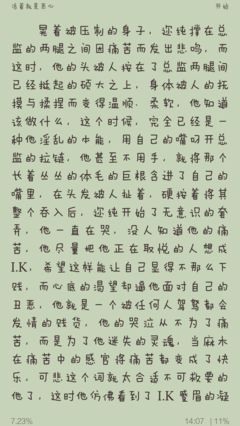 活着就是恶心
开始
晃着被压制的身子，迩纯撑在总
监的两腿之间因痛苦而发出悲鸣，而
这时，他的头被人按在了总监两腿间
已经抵起的硕大之上，身体被人的抚
摸与揉捏而变得温顺，柔软，他知道
该做什么，这个时候，完全已经是一
种他淫乱的本能，用自己的嘴吗开总
监的拉链，他甚至不用手，就将那个
长着丛丛的体毛的巨根含进了自己的
嘴里，在头发被人扯着，硬按着将其
整个吞入后，迩纯开始了无意识的套
弄，他一直在哭，没人知道他的痛
苦，他尽量把他正在取悦的人想成
I.K，希望这样能让自己显得不那么下
贱，而心底的渴望却逼他面对自己的
丑恶，他就是一个被任何人驾驭都会
发情的贱货，他的哭泣从不为了痛
苦，而是为了他迷失的灵魂，当麻木
在痛苦中的感官将痛苦都变成了快
乐，可悲这个词就太合适不可救要的
他了，这时他仿佛看到了I.K蹙眉的凝
7.23%
14:07 | 11%